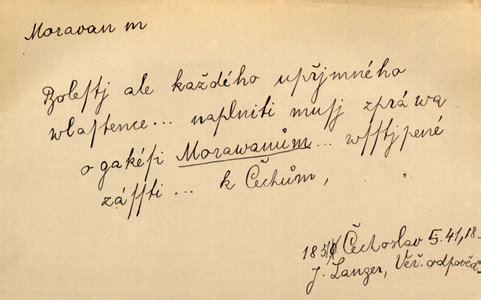 Moravan m
Bolestj ale každého upřjmného
wlastence... naplniti musj zpráwa
o gakési Morawanům... wsstjpené
zášsti... k Čechům,
Čechoslav 5.41,18-
J. Langer, Veř. odpověď